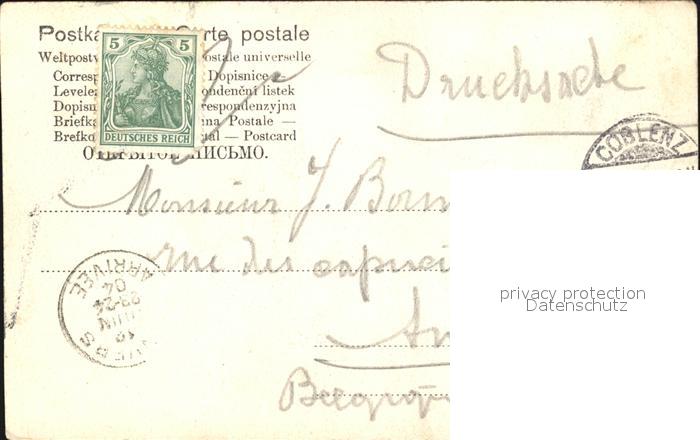 Postka Carte postale
Weltpostv ostale universelle
Corresp Dopisnice
Levele ondenční listek
Dopisn respondenzyjna
Briefka na Postale —
Brefko al — Postcard
ОТКРЫТОЕ ПИСЬМО.
5 5
DEUTSCHES REICH
Drucksache
COBLENZ
Monsieur J. Born
rue des capuci
An
Belgiq
ARRIVÉE
04
23-24
JUIN
10
VERS
privacy protection
Datenschutz